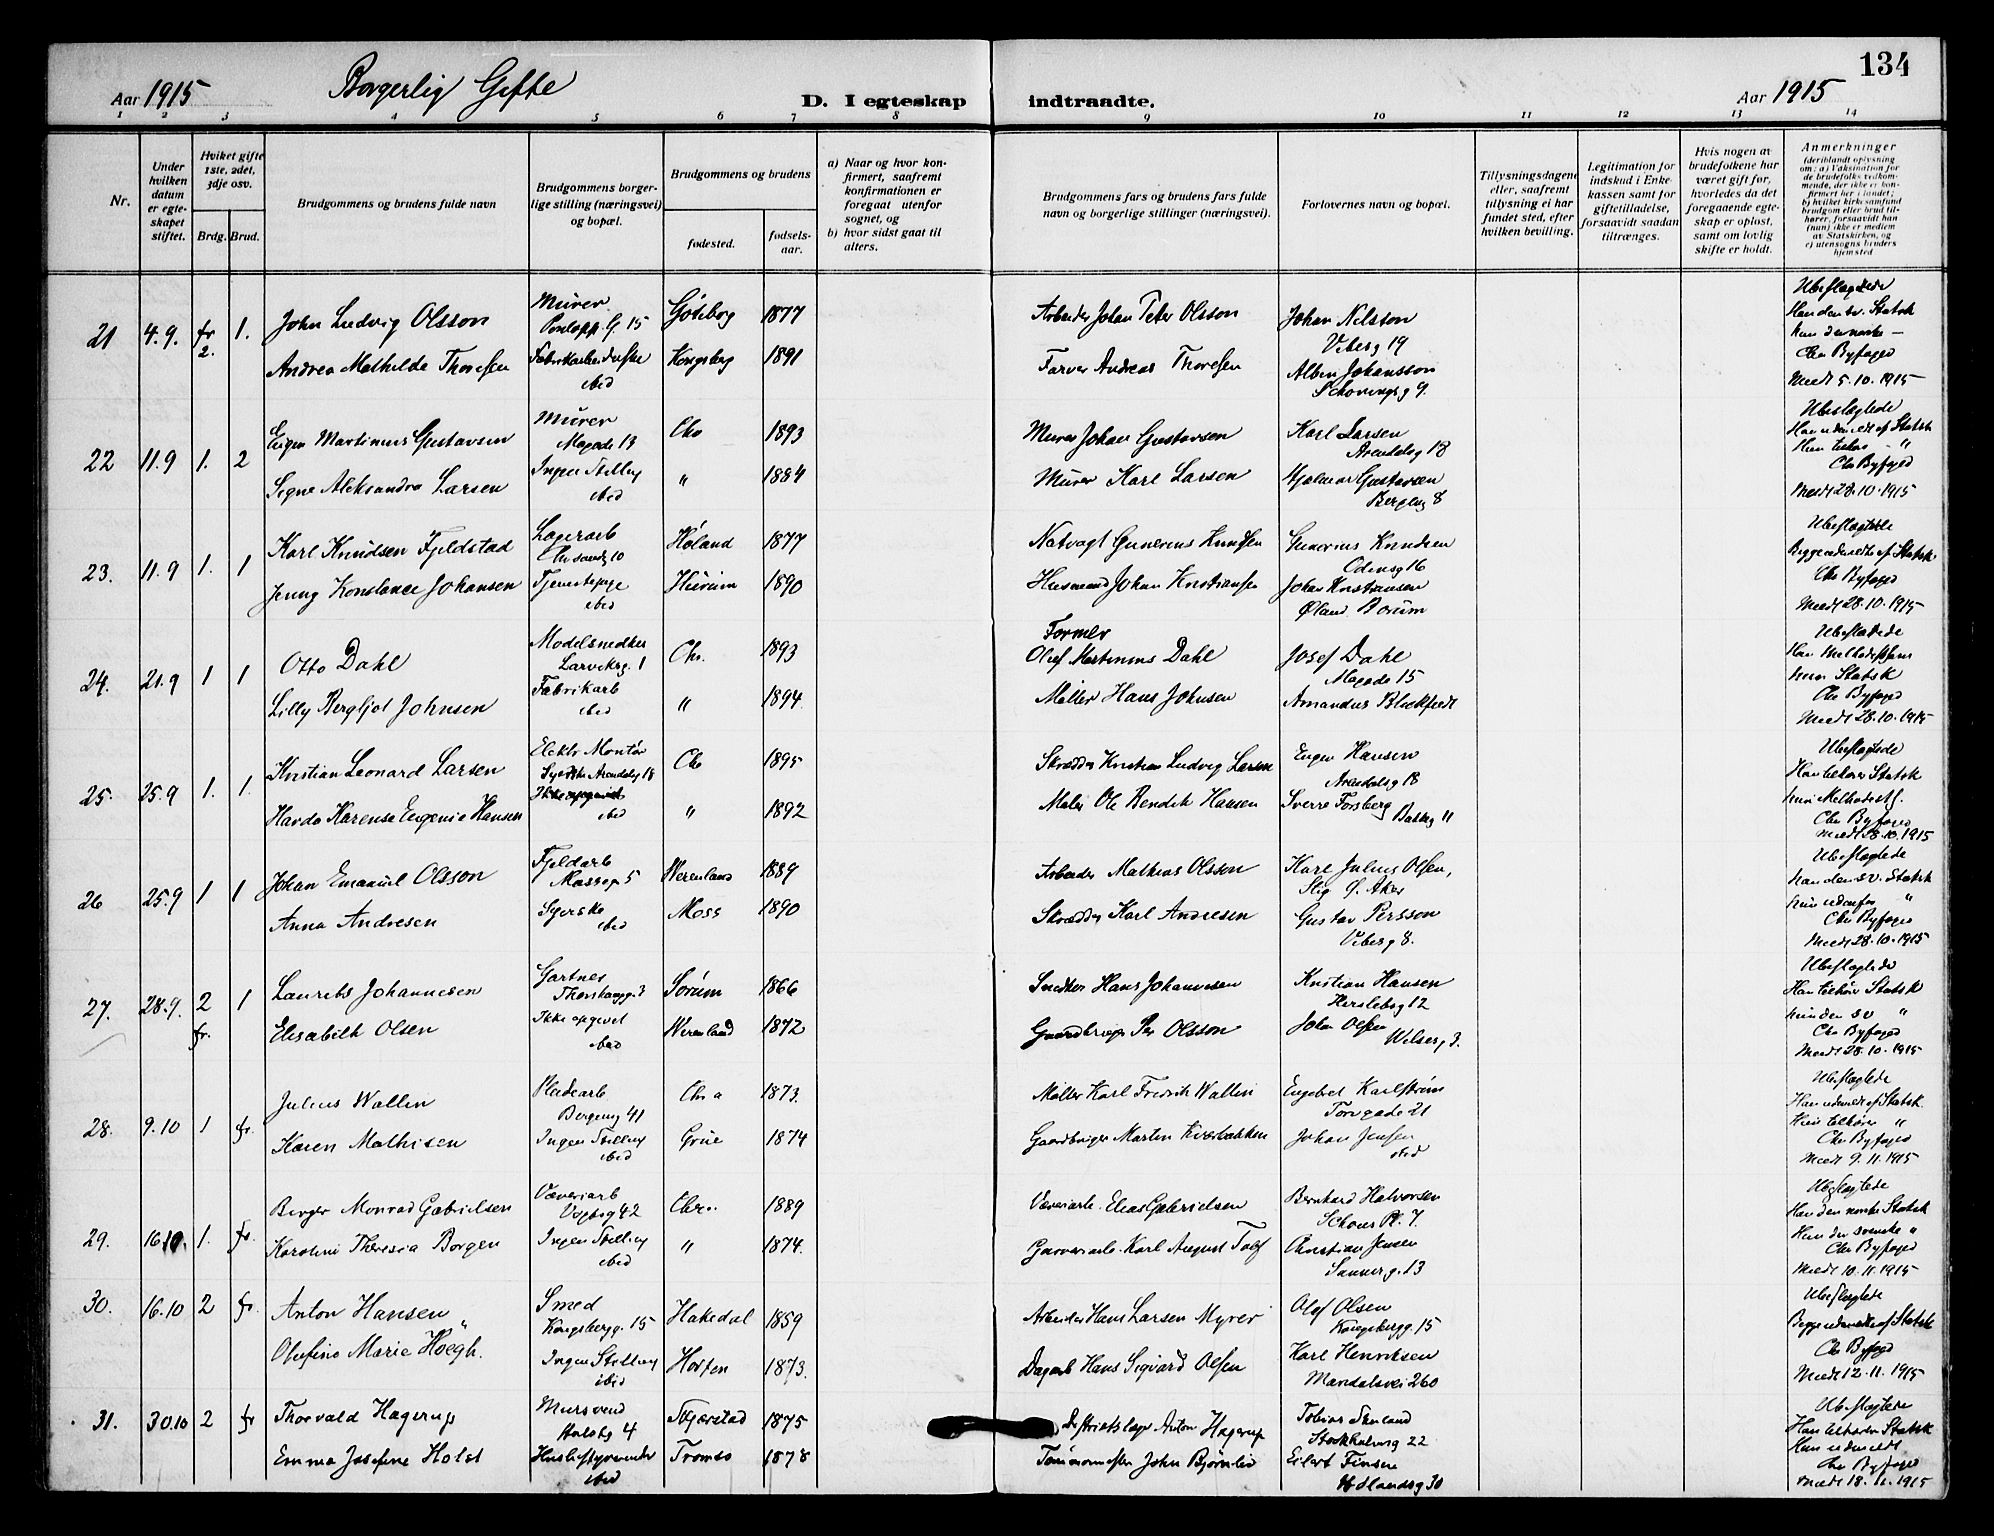 134
Aar 1915
Borgerlig Gifte
D. I egteskap
indtraadte.
Aar 1915
1 2 3 4 5 6 7 8 9 10 11 12 13 14
Nr.
Under hvilken datum er egteskapet stiftet.
Hviket gifte 1ste, 2det, 3dje osv.
Brdg. Brud.
Brudgommens og brudens fulde navn
Brudgommens borgerlige stilling (næringsvei) og bopæl.
Brudgommens og brudens
fødested.
fødselsaar.
a) Naar og hvor konfirmert, saafremt konfirmationen er foregaat utenfor sognet, og
b) hvor sidst gaat til alters.
Brudgommens fars og brudens fars fulde navn og borgerlige stillinger (næringsvei).
Forlovernes navn og bopæl.
Tillysningsdagene eller, saafremt tillysning ei har fundet sted, efter hvilken bevilling.
Legitimation for indskud i Enkekassen samt for giftetilladelse, forsaavidt saadan tiltrænges.
Hvis nogen av brudefolkene har været gift før, hvorledes da det foregaaende egteskap er opløst, samt om lovlig skifte er holdt.
Anmerkninger
(deriblandt oplysning om: a) Vaksination for de brudefolks vedkommende, der ikke er konfirmert her i landet; b) hvilket kirkesamfund brudgom eller brud tilhører, forsaavidt han (hun) ikke er medlem av Statskirken, og c) utensogns bruders hjemsted
21 4.9. fr 2. 1. John Ludvig Olsson Murer G 15 Gøteborg 1877 Arbeider Johan Peter Olsson Johan Nilsson Vibesg 19 Ubeslægtede Han den sv. Statsk
Andrea Mathilde Thoresen ibid Kongsberg 1891 Farver Andreas Thoresen Albin Johansson 9. Hun den norske — Chr Byfoged Medt 5.10.1915
22 11.9 1. 2 Eugen Martinius Gustavsen Murer Møgade 13 Chr 1893 Murer Johan Gustavsen Karl Larsen Arendalsg 18 Ubeslægtede Han udmeldt af Statsk
Signe Aleksandra Larsen Ingen Stilling ibid " 1884 Murer Karl Larsen Hjalmar Gustavsen Bergensg 8 Hun tilhør — " Chr Byfoged Medt 28.10.1915
23. 11.9 1. 1 Karl Knudsen Fjeldstad Lagerarb Chrsandsg 10 Høland 1877 Natvagt Gunerius Knudsen Gunerius Knudsen Odensg 16 Ubeslægtede Begge udmeldte af Statsk
Jenny Konstance Johansen Tjenestepige ibid Hurum 1890 Husmand Johan Kristiansen Johan Kristiansen Øland Borum Chr Byfoged Medt 28.10.1915
24. 21.9 1 1 Otto Dahl Modelsnedker Larviksg. 1 Chr. 1893 Former Olaf Martinius Dahl Josef Dahl Møgade 15 Ubeslægtede Han Methodistsam
Lilly Bergljot Johnsen Fabrikarb ibid " 1894 Møller Hans Johnsen Amandus Blickfeldt hun Statsk Chr Byfoged Medt 28.10.1915
25. 25.9 1. 1. Kristian Leonard Larsen Elektr Montør Arendalsg 18 Chr 1895 Skrædder Kristian Ludvig Larsen Eugen Hansen Arendalsg 18 Ubeslægtede Han tilhører Statsk
Harda Karense Eugenie Hansen ibid " 1892 Maler Ole Bendik Hansen Sverre Forsberg Bakkeg 11 hun Methodistf. Chr Byfoged Medt 28.10.1915
26 25.9 1 1 Johan Emanuel Olsson Fjeldarb Mosseg 5 Wermland 1889 Arbeider Mathias Olsson Karl Julius Olsen, Ø. Aker Ubeslægtede han den sv. Statsk
Anna Andresen Syerske ibid Moss 1890 Skrædder Karl Andresen Gustav Persson Vibesg 8. hun udenfor " Chr Byfoged Medt 28.10.1915
27. 28.9. 2 1 Laurits Johannesen Gartner 3 Sørum 1866 Snedker Hans Johannesen Kristian Hansen Herslebsg 12 Ubeslægtede Han tilhører Statsk
fr. Elisabeth Olsen Ikke opgivet ibid Wermland 1872 Gaardbruger Per Olsson Johan Olsen Welserg 3. hun den sv " Chr Byfoged Medt 28.10.1915
28. 9.10 1 fr. Julius Wallin Pladearb Bergensg 41 Chr a 1873. Møller Karl Fredrik Wallin Engebret Karlstrøm Torvgade 21 Ubeslægtede Han udmeldt af Statsk.
Karen Mathisen Ingen Stilling ibid Grue 1874 Gaardbruger Martin Kverbakken Johan Jensen ibid Hun tilhører " Chr Byfoged Medt 9.11.1915
29. 16.10. 1. fr. Berger Monrad Gabrielsen Væveriarb Vogtsg 42 Chr. 1889 Væveriarb. Elias Gabrielsen Bernhard Halvorsen Schous Pl. 7. Ubeslægtede Han den norske Statsk
Karoline Theresia Borgen Ingen Stilling ibid " 1874. Garveriarb. Karl August Christian Jensen Sannerg. 13 Hun den svenske " Chr Byfoged Medt 10.11.1915
30. 16.10 2 fr. Anton Hansen Smed Kongsbergg. 15 Hakedal 1859 Arbeider Hans Larsen Myrer Olaf Olsen Kongsbergg. 15 Ubeslægtede Begge udmeldte af Statsk
Olufine Marie Høegh. Ingen Stilling ibid Holten 1873. Dagarb Hans Sigvard Olsen Karl Henriksen Mandalsvei 260 Chr Byfoged Medt 12.11.1915
31. 30.10 2 fr Thorvald Hagerup Mursvend 4 Skjerstad 1875 Distriktslæge Anton Hagerup Tobias Stockholmsg 22 Ubeslægtede Han tilhører Statsk
Emma Josefine Holst Husbestyrerinde ibid Tromsø 1878 Tømmermester John Bjørnlid Eilert Finsen 30 Hun udmeldt Chr Byfoged Medt 18.11.1915